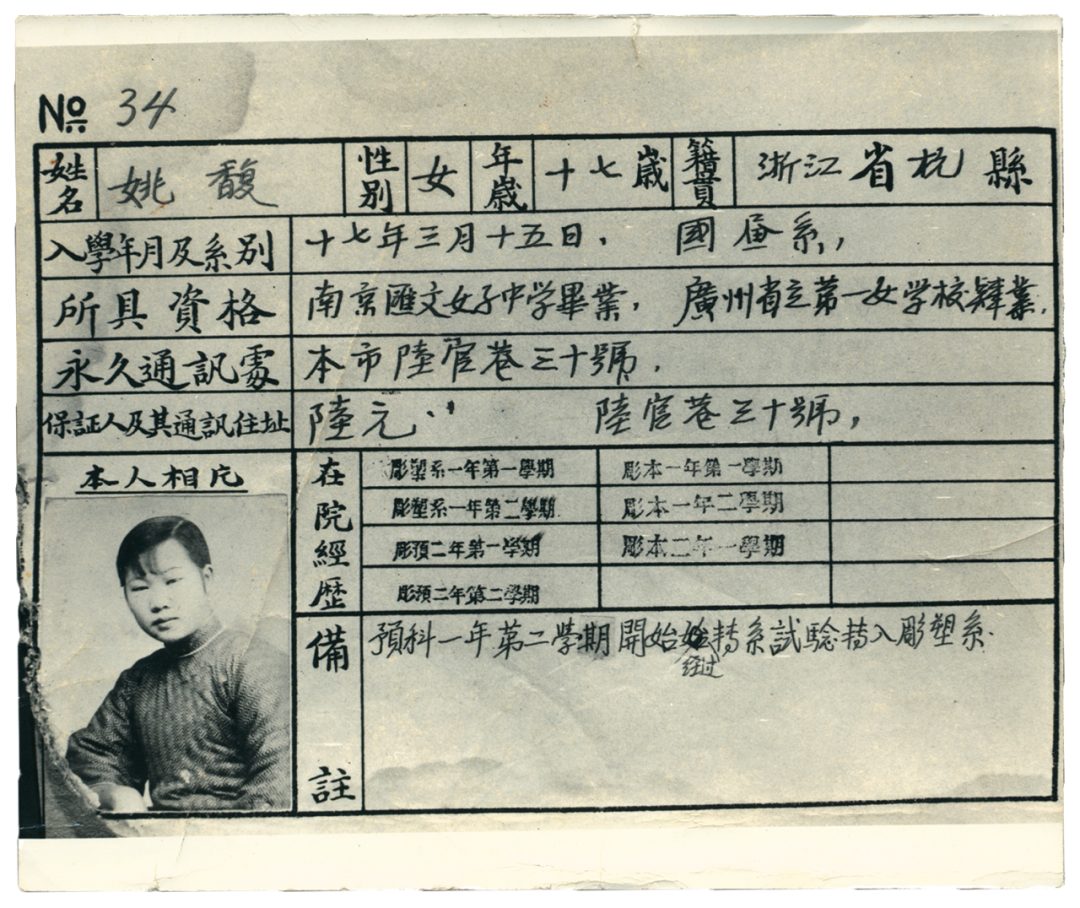 № 34
姓名 姚馥 性别 女 年歲 十七歲 籍貫 浙江省杭縣
入學年月及系别 十七年三月十五日, 國畫系,
所具資格 南京匯文女子中学畢業, 廣州省立第一女学校肄業.
永久通訊處 本市陸官巷三十號.
保証人及其通訊住址 陸元 陸官巷三十號,
本人相片
在院經歷
彫塑系一年第一學期 彫本一年第一學期
彫塑系一年第二學期 彫本一年二學期
彫預二年第一學期 彫本二年一學期
彫預二年第二學期
備註
預科一年第二學期開始 轉系試驗轉入彫塑系.
经过